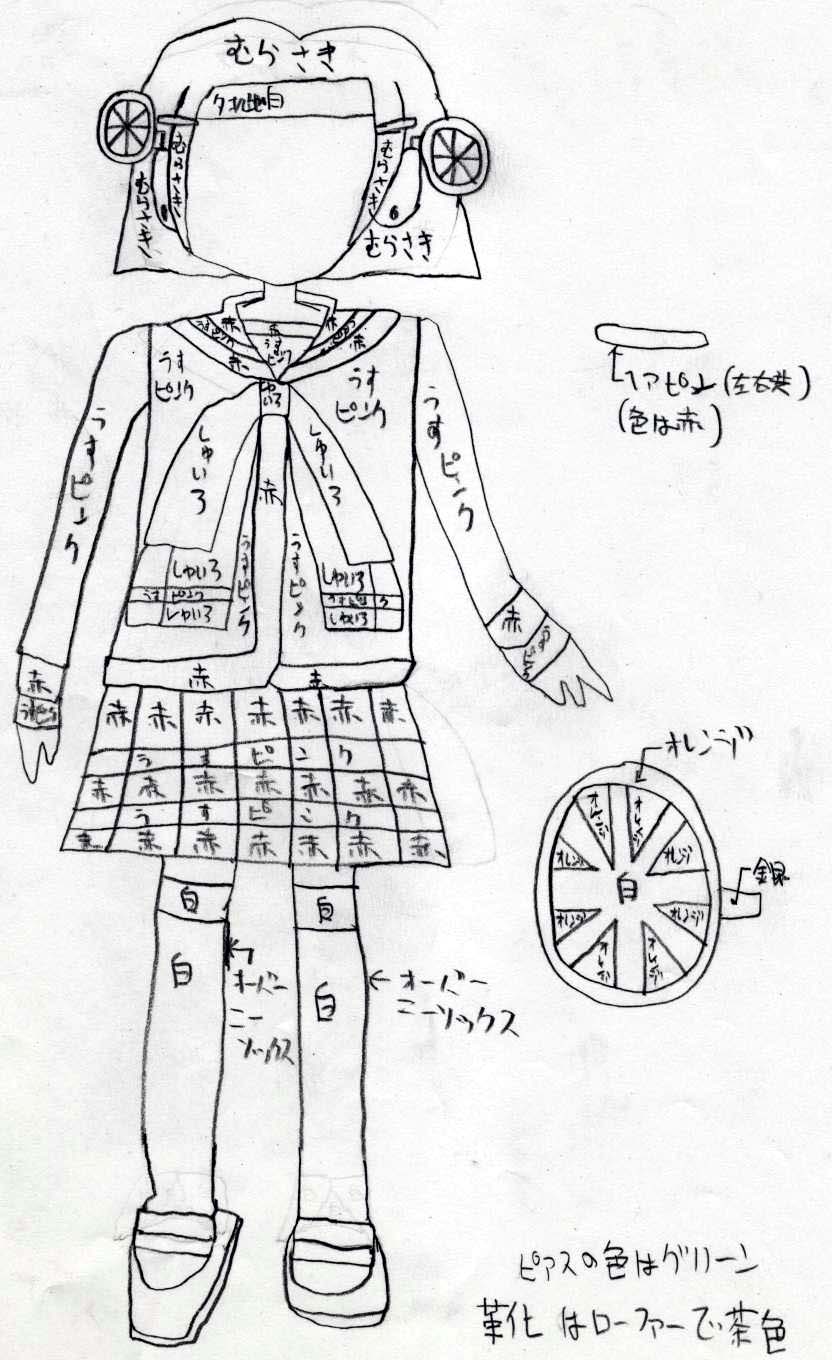 むらさき
むらさき
むらさき
むらさき
むらさき
赤
うす
ピンク
赤
赤
赤
うす
ピンク
うす
ピンク
しゅいろ
うすピンク
うすピンク
しゅいろ
しゅいろ
赤
うすピンク
うすピンク
しゅいろ
うすピンク
しゅいろ
しゅいろ
うすピンク
しゅいろ
赤
うすピンク
赤
赤
赤
赤 赤 赤 赤 赤 赤 赤
うすピンク
赤 赤 赤 赤 赤 赤 赤
うすピンク
赤 赤 赤 赤 赤 赤 赤
白
白
白
白
オーバー
ニー
ソックス
オーバー
ニーソックス
ヘアピン(左右共)
(色は赤)
オレンジ
オレンジ
オレンジ
オレンジ
オレンジ
白
オレンジ
オレンジ
オレンジ
オレンジ
ピアスの色はグリーン
はローファーで茶色